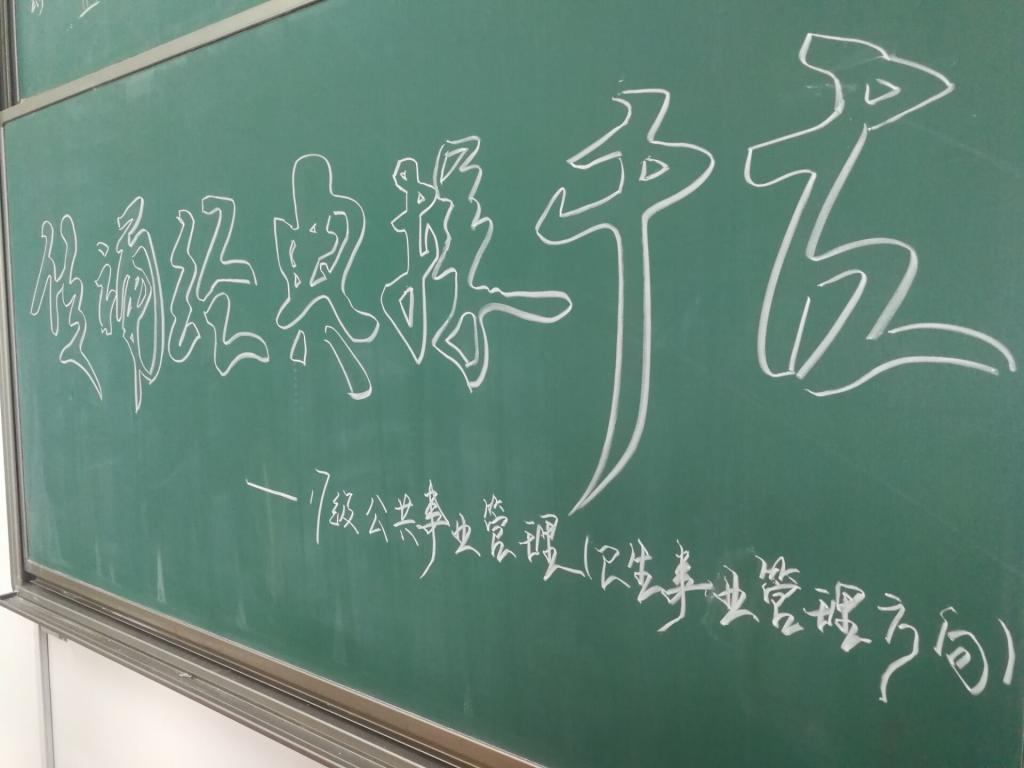 传诵经典接千古
—17级公共事业管理(卫生事业管理方向)